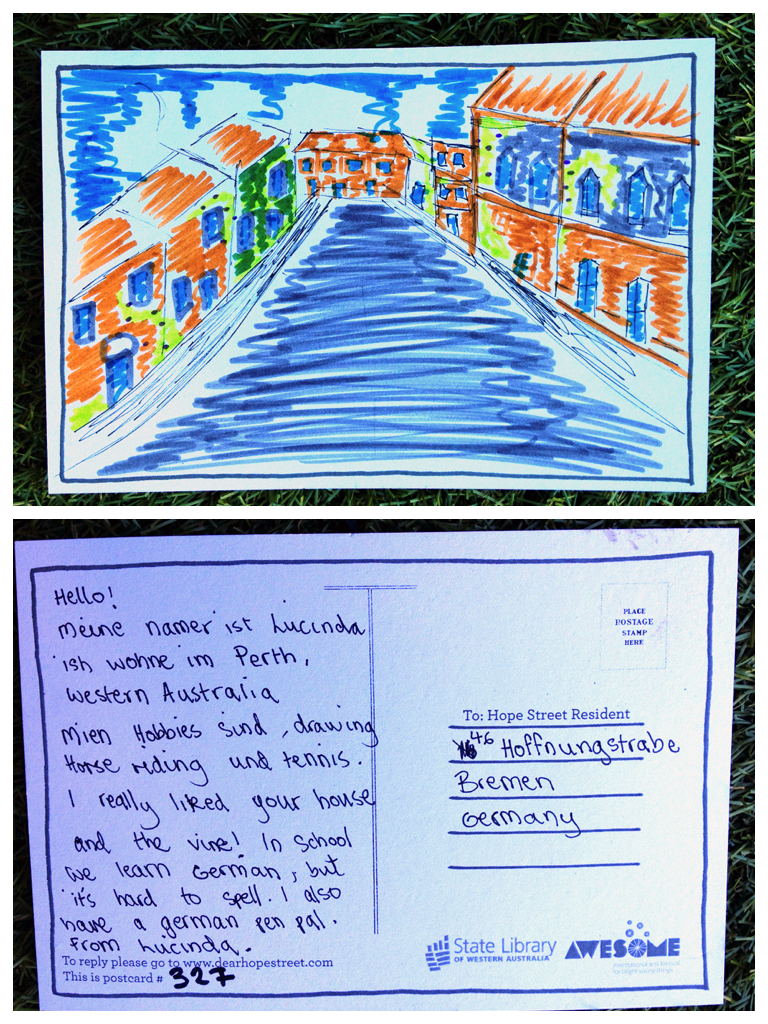 Hello!
Meine namer ist Lucinda
ish wohne im Perth,
Western Australia
Mien Hobbies sind , drawing
Horse riding und tennis.
I really liked your house
and the vine! In School
we learn German, but
it's hard to spell. I also
have a german pen pal.
From Lucinda.
To reply please go to www.dearhopestreet.com
This is postcard # 327
PLACE
POSTAGE
STAMP
HERE
To: Hope Street Resident
46 Hoffnungstrabe
Bremen
Germany
State Library
OF WESTERN AUSTRALIA
AWESOME
international arts festival
for bright young things